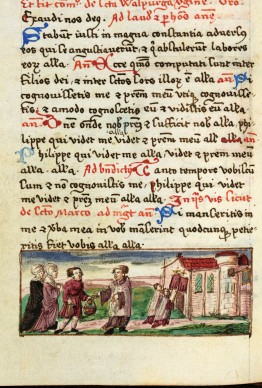 Et fit com̄. de scta Walpurga ṽgine. Vro.
Exaudi nos deꝯ. Ad laudꝫ ꝑ hōre añe
Stabūt iusti in magna constantia aduersꝰ
eos qui se angustiauerūt: ꝫ q̇ abstulerūt labores
eoꝝ alla. Añ Ecce quō computati sunt inter
filios dei: ꝫ inter sctos sors illoꝝ ē alla. añ
cognouissetis me ꝫ prēm meū vtiqꝫ cognouisse-
tis: ꝫ amodo cognoscetis eū ꝫ vidistis eū alla
añ Dñe ondē nob prēꝫ ꝫ sufficit nob alla. phi-
lippe qui videt me videt ꝫ prēm meū alla. añ
Philippe qui videt me alla. videt ꝫ prēm meū
alla. alla. Ad bn̄dictꝰ Tanto tempore vobiscū
sum ꝫ nō cognouistis me: philippe qui videt
me videt ꝫ prēꝫ meū alla. alla. In ij̄ꝰ vīs sicut
de scto Marco. ad mgt añ Si manseritis in
me ꝫ ṽba mea in vob māserint quodcunqꝫ petie-
ritis fiet vobis alla. alla.